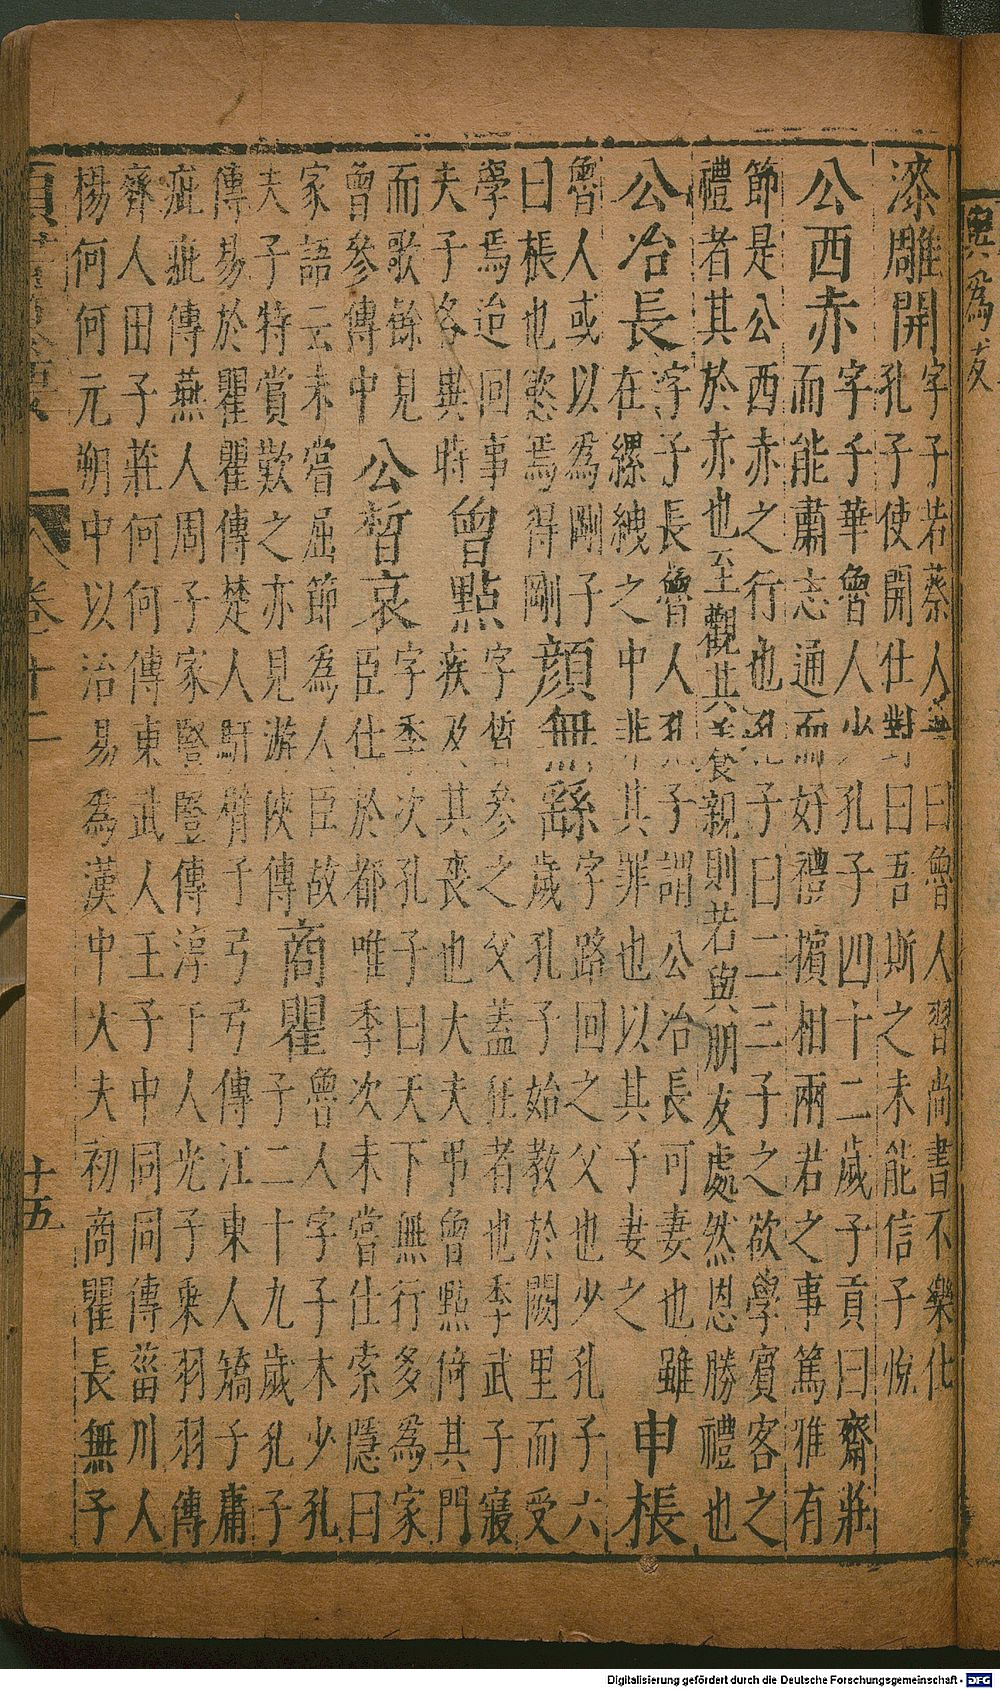 與為友
漆雕開
字子若蔡人一曰魯人習尚書不樂仕
孔子使開仕對曰吾斯之未能信子悅
公西赤
字子華魯人少孔子四十二歲子貢曰齋莊
而能肅志通而好禮擯相兩君之事篤雅有
節是公西赤之行也孔子曰二三子之欲學賓客之
禮者其於赤也至觀其養親則若與朋友處然恩勝禮也
公冶長
字子長魯人孔子謂公冶長可妻也雖
在縲絏之中非其罪也以其子妻之
申棖
魯人或以為剛子
曰棖也慾焉得剛
顏無繇
字路回之父也少孔子六
歲孔子始教於闕里而受
學焉迨回事
夫子各異時
曾點
字皙參之父蓋狂者也季武子寢
疾及其喪也大夫弔曾點倚其門
而歌餘見
曾參傳中
公皙哀
字季次孔子曰天下無行多為家
臣仕於都唯季次未嘗仕索隱曰
家語云未嘗屈節為人臣故
夫子特賞歎之亦見游俠傳
商瞿
魯人字子木少孔
子二十九歲孔子
傳易於瞿瞿傳楚人馯臂子弓弓傳江東人矯子庸
疵疵傳燕人周子家豎豎傳淳于人光子乘羽羽傳
齊人田子莊何何傳東武人王子中同同傳菑川人
楊何何元朔中以治易為漢中大夫初商瞿長無子
十五
Digitalisierung gefördert durch die Deutsche Forschungsgemeinschaft - DFG